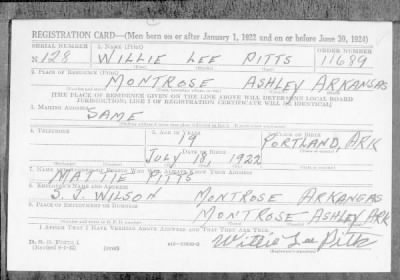 REGISTRATION CARD—(Men born on or after January 1, 1922 and on or before June 30, 1924)
SERIAL NUMBER 1. NAME (Print) ORDER NUMBER
N 128 WILLIE LEE PITTS 11689
2. PLACE OF RESIDENCE (Print)
MONTROSE ASHLEY ARKANSAS
[THE PLACE OF RESIDENCE GIVEN ON THE LINE ABOVE WILL DETERMINE LOCAL BOARD
JURISDICTION; LINE 2 OF REGISTRATION CERTIFICATE WILL BE IDENTICAL]
3. MAILING ADDRESS
SAME
4. TELEPHONE 5. AGE IN YEARS 6. PLACE OF BIRTH
19 PORTLAND, ARK
DATE OF BIRTH
JULY 18, 1922
7. NAME AND ADDRESS OF PERSON WHO WILL ALWAYS KNOW YOUR ADDRESS
MATTIE PITTS
8. EMPLOYER'S NAME AND ADDRESS
S. J. WILSON MONTROSE ARKANSAS
9. PLACE OF EMPLOYMENT OR BUSINESS
MONTROSE ASHLEY ARK
I AFFIRM THAT I HAVE VERIFIED ABOVE ANSWERS AND THAT THEY ARE TRUE.
D. S. S. FORM 1
Willie Lee Pitts